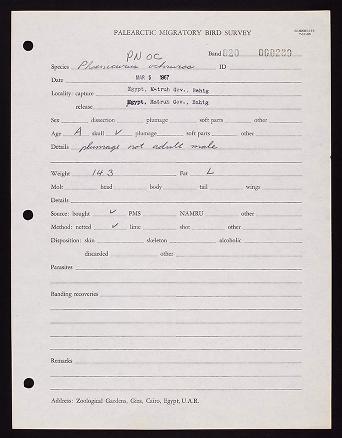 PALEARCTIC MIGRATORY BIRD SURVEY
PN OC
Band 820 008280
Species Phoenicurus ochruros ID
Date MAR 5 1967
Locality: capture Egypt, Matruh Gov., Bahig
release Egypt, Matruh Gov., Bahig
Sex dissection plumage soft parts other
Age A skull ✓ plumage soft parts other
Details plumage not adult male
Weight 14.3 Fat L
Molt head body tail wings
Details
Source: bought ✓ PMS NAMRU other
Method: netted ✓ lime shot other
Disposition: skin skeleton alcoholic
discarded other
Parasites
Banding recoveries
Remarks
Address: Zoological Gardens, Giza, Cairo, Egypt, U.A.R.